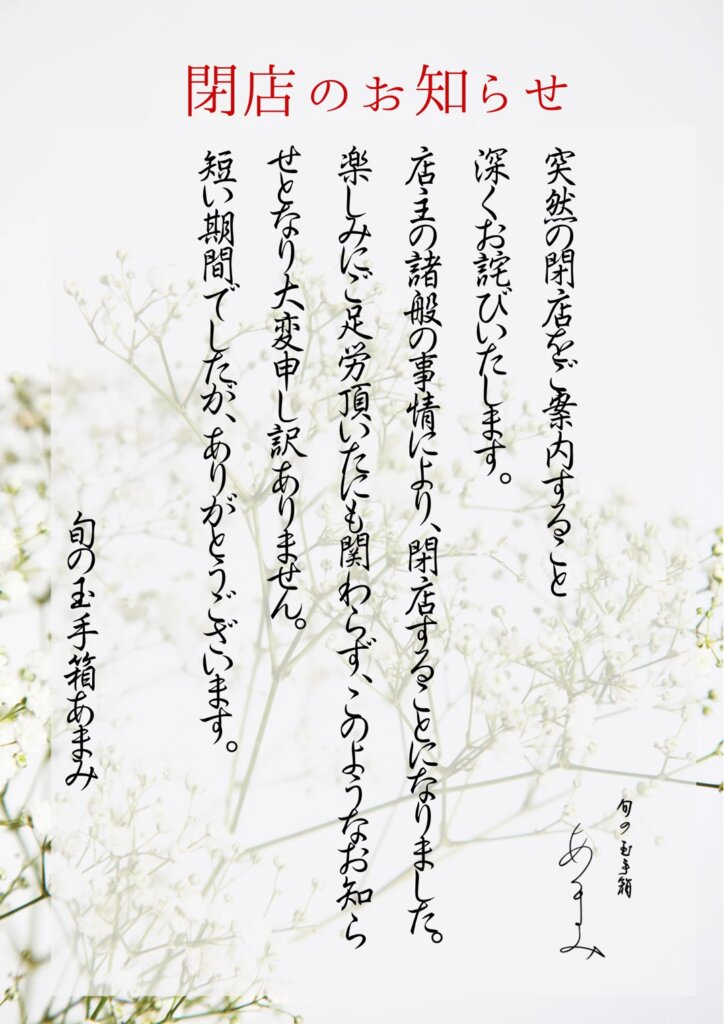 閉店のお知らせ
突然の閉店をご案内すること
深くお詫びいたします。
店主の諸般の事情により、閉店することになりました。
楽しみにご足労頂いたにも関わらず、このようなお知ら
せとなり大変申し訳ありません。
短い期間でしたが、ありがとうございます。
旬の玉手箱あまみ
旬の玉手箱
あまみ